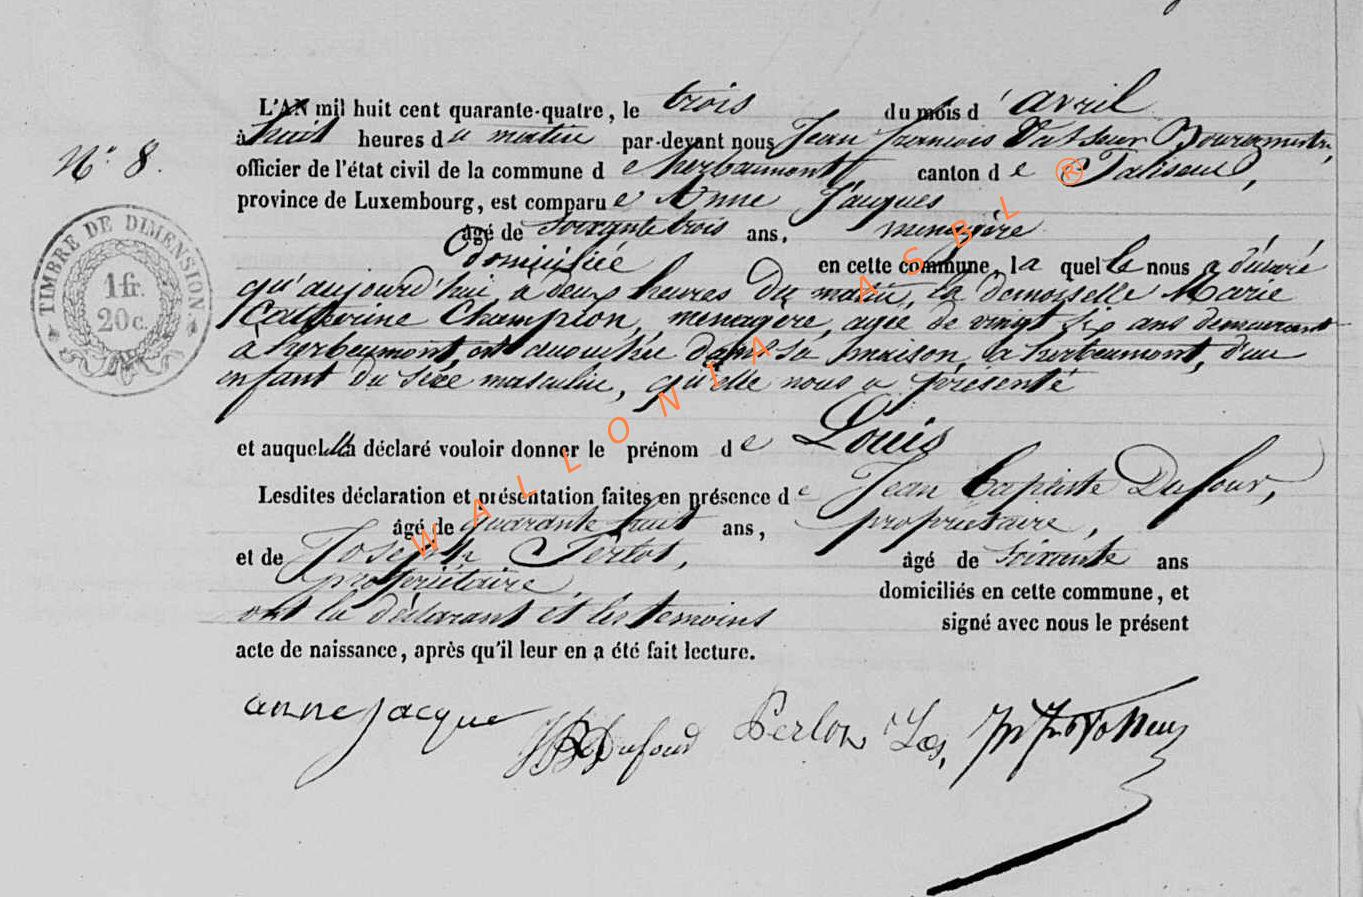 N° 8.
TIMBRE DE DIMENSION.
1 fr.
20 c.
L'AN mil huit cent quarante-quatre, le trois du mois d'avril
à huit heures du matin par-devant nous Jean francois Bourgmestre,
officier de l'état civil de la commune de herbeumont canton de Paliseul,
province de Luxembourg, est comparue Anne Jacques
âgé de Soixante trois ans, menagère
domiciliée en cette commune, la quelle nous a déclaré
qu'aujourd'hui à deux heures du matin, la demoiselle Marie
Catherine Champion, menagère, agée de vingt six ans demeurant
à herbeumont, est accouchée dans sa maison, à herbeumont, d'un
enfant du sexe masculin, qu'elle nous a présenté
et auquel elle a déclaré vouloir donner le prénom de Louis
Lesdites déclaration et présentation faites en présence de Jean baptiste Dufour,
âgé de quarante huit ans, propriétaire,
et de Joseph Perlot, âgé de soixante ans
propriétaire domiciliés en cette commune, et
ont la déclarant et les temoins signé avec nous le présent
acte de naissance, après qu'il leur en a été fait lecture.
anne jacque Dufour Perlot
WALLONIA ASBL ®